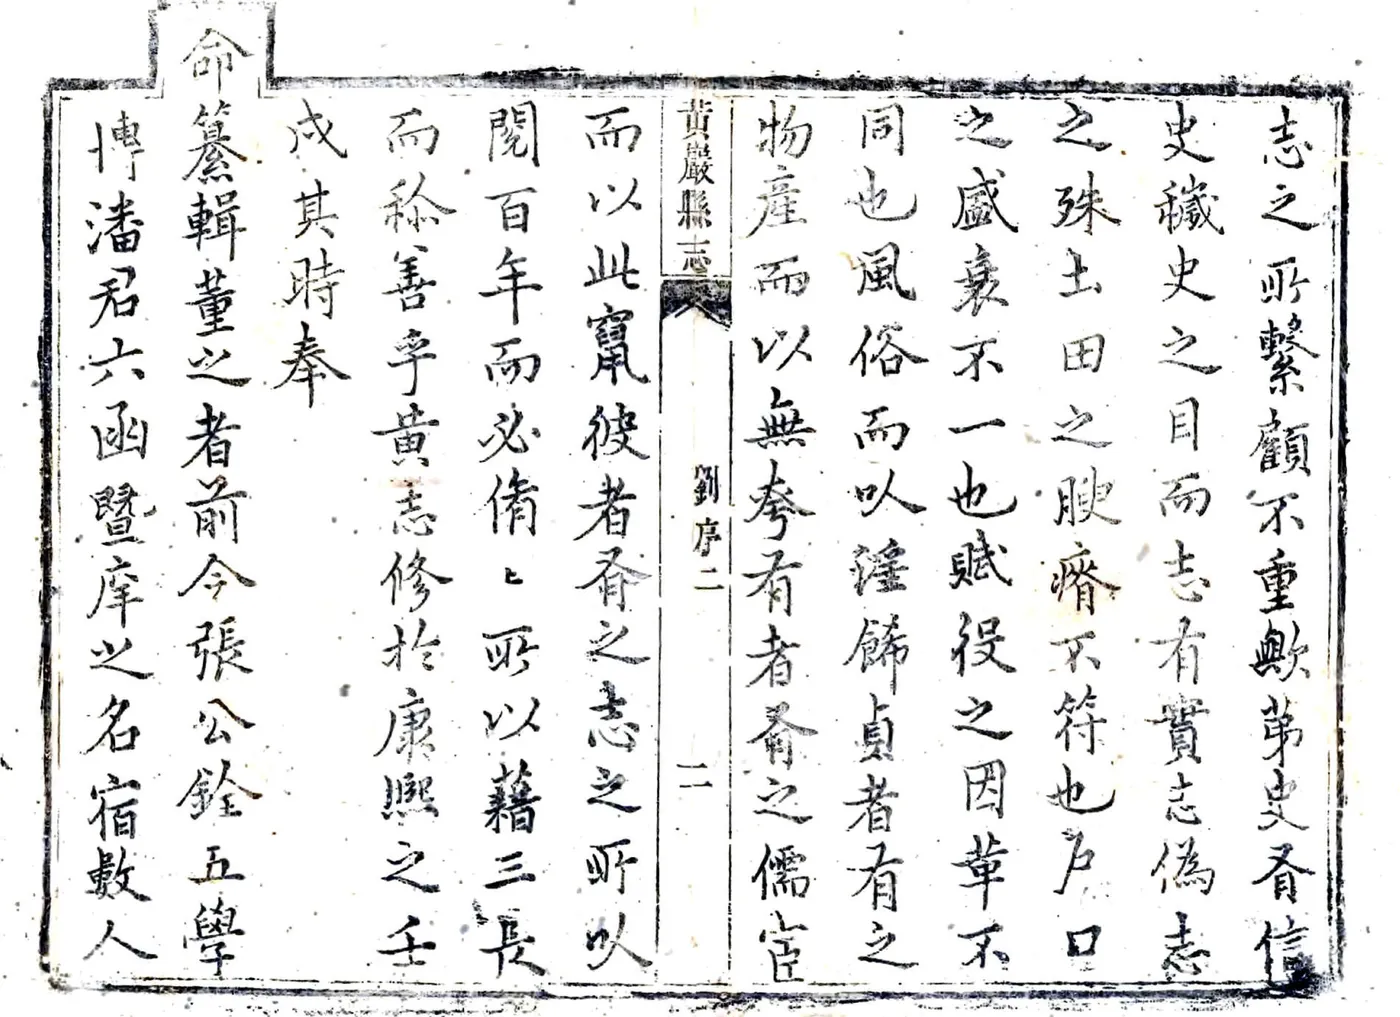 志之所繫顧不重歟苐史有信
史穢史之目而志有實志偽志
之殊土田之腴瘠不符也戶口
之盛衰不一也賦役之因革不
同也風俗而以淫餙貞者有之
物產而以無夸有者有之儒宦
黃巖縣志
劉序二
二
而以此竄彼者有之志之所以
閱百年而必脩〻所以藉三長
而稱善乎黃志修於康熙之壬
戌其時奉
命纂輯董之者前令張公銓五學
博潘君六函暨庠之名宿數人